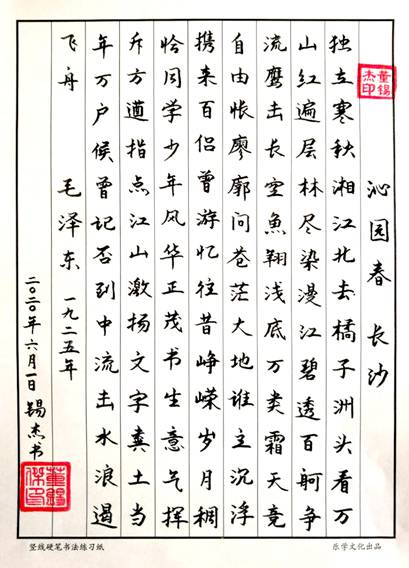 沁园春 长沙
独立寒秋湘江北去橘子洲头看万
山红遍层林尽染漫江碧透百舸争
流鹰击长空魚翔浅底万类霜天竞
自由怅廖廓问苍茫大地谁主沉浮
携来百侣曾游忆往昔峥嵘岁月稠
恰同学少年风华正茂书生意气挥
斥方遒指点江山激扬文字粪土当
年万户候曾记否到中流击水浪遏
飞舟 毛泽东 一九二五年
二〇二〇年六月一日 锡杰书
董锡杰印
董錫傑印
竖线硬笔书法练习纸
乐学文化出品